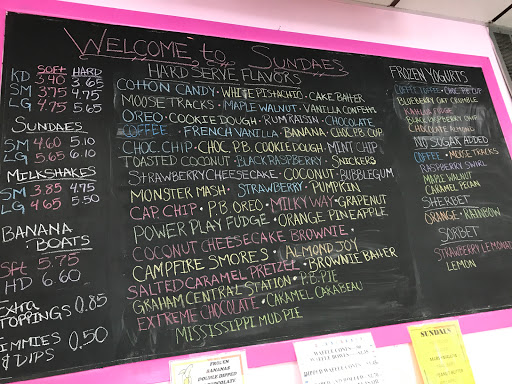 WELCOME to SUNDAES
SOFT HARD
KD 3.40 3.65
SM 3.75 4.75
LG 4.75 5.65
SUNDAES
SM 4.60 5.10
LG 5.65 6.10
MILKSHAKES
SM 3.85 4.75
LG 4.65 5.50
BANANA
BOATS
Sft 5.75
HD 6.60
Extra
TOPPINGS 0.85
JIMMIES
& DIPS 0.50
HARD SERVE FLAVORS
COTTON CANDY • WHITE PISTACHIO • CAKE BATTER
MOOSE TRACKS • MAPLE WALNUT • VANILLA CONFETTI
OREO • COOKIE DOUGH • RUM RAISIN • CHOCOLATE
COFFEE • FRENCH VANILLA • BANANA • CHOC. P.B. CUP
CHOC. CHIP • CHOC. P.B. COOKIE DOUGH • MINT CHIP
TOASTED COCONUT • BLACK RASPBERRY • SNICKERS
STRAWBERRY CHEESECAKE • COCONUT • BUBBLEGUM
MONSTER MASH • STRAWBERRY • PUMPKIN
CAP. CHIP • P.B. OREO • MILKY WAY • GRAPENUT
POWER PLAY FUDGE • ORANGE PINEAPPLE
COCONUT CHEESECAKE BROWNIE •
CAMPFIRE SMORES • ALMOND JOY
SALTED CARAMEL PRETZEL • BROWNIE BATTER
GRAHAM CENTRAL STATION • P.B. PIE
EXTREME CHOCOLATE • CARAMEL CARABEAU
MISSISSIPPI MUD PIE
FROZEN YOGURTS
COFFEE TOFFEE • CHOC. P.B. CUP
BLUEBERRY OAT CRUMBLE
KAHLUA FUDGE
BLACK RASPBERRY CHIP
CHOCOLATE ALMOND
NO SUGAR ADDED
COFFEE • MOOSE TRACKS
RASPBERRY SWIRL
MAPLE WALNUT
CARAMEL PECAN
SHERBET
ORANGE • RAINBOW
SORBET
STRAWBERRY LEMONADE
LEMON
FROZEN
BANANAS
DOUBLE DIPPED
CHOCOLATE
WAFFLE CONES
SUNDAES